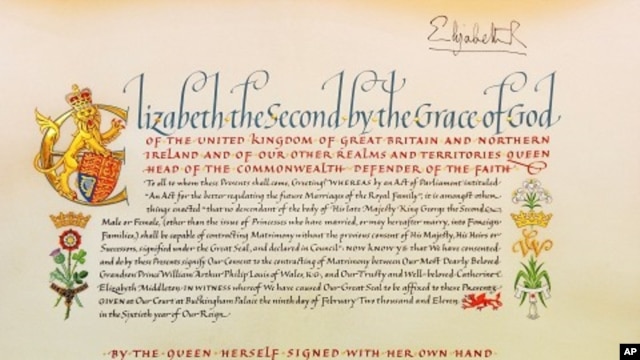 Elizabeth R
Elizabeth the Second by the Grace of God
OF THE UNITED KINGDOM OF GREAT BRITAIN AND NORTHERN
IRELAND AND OF OUR OTHER REALMS AND TERRITORIES QUEEN
HEAD OF THE COMMONWEALTH DEFENDER OF THE FAITH
To all to whom these Presents shall come, Greeting! WHEREAS by an Act of Parliament entituled
"An Act for the better regulating the future Marriages of the Royal Family", it is amongst other
things enacted "that no descendant of the body of His late Majesty King George the Second
Male or Female, (other than the issue of Princesses who have married, or may hereafter marry, into Foreign
Families,) shall be capable of contracting Matrimony without the previous consent of His Majesty, His Heirs or
Successors, signified under the Great Seal, and declared in Council". NOW KNOW YE that We have consented
and do by these Presents signify Our Consent to the contracting of Matrimony between Our Most Dearly Beloved
Grandson Prince William Arthur Philip Louis of Wales, K.G., and Our Trusty and Well-beloved Catherine
Elizabeth Middleton. IN WITNESS whereof We have caused Our Great Seal to be affixed to these Presents
GIVEN at Our Court at Buckingham Palace the ninth day of February Two thousand and Eleven
in the Sixtieth year of Our Reign.
·BY THE QUEEN HERSELF SIGNED WITH HER OWN HAND
AP